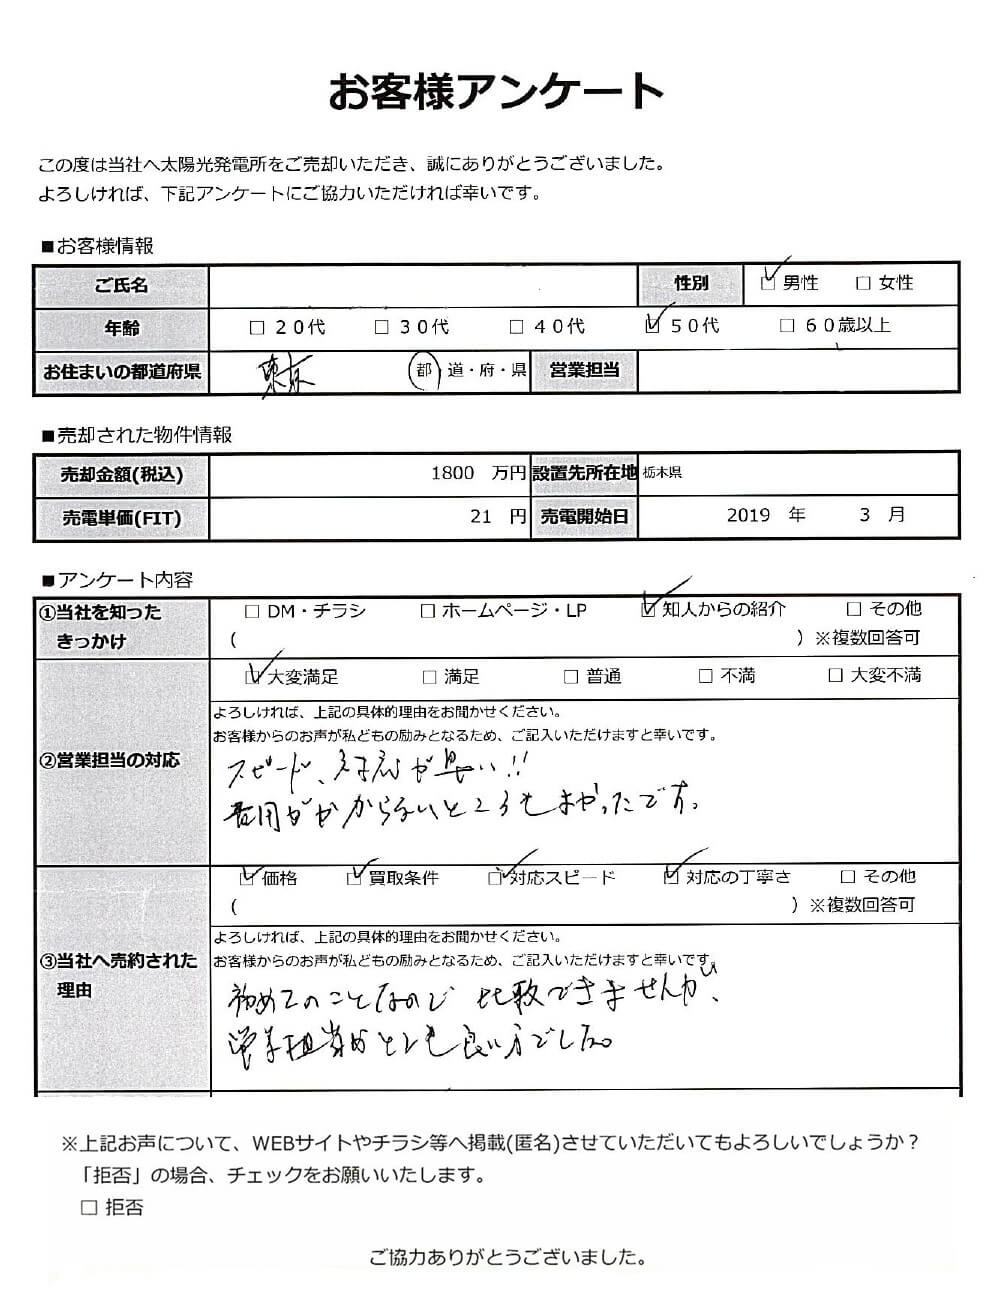 お客様アンケート
この度は当社へ太陽光発電所をご売却いただき、誠にありがとうございました。
よろしければ、下記アンケートにご協力いただければ幸いです。
■お客様情報
ご氏名 性別 ☑ 男性 □ 女性
年齢 □ 20代 □ 30代 □ 40代 ☑ 50代 □ 60歳以上
お住まいの都道府県 東京 都 道・府・県 営業担当
■売却された物件情報
売却金額(税込) 1800 万円 設置先所在地 栃木県
売電単価(FIT) 21 円 売電開始日 2019 年 3 月
■アンケート内容
①当社を知った □ DM・チラシ □ ホームページ・LP ☑ 知人からの紹介 □ その他
きっかけ ( ) ※複数回答可
☑ 大変満足 □ 満足 □ 普通 □ 不満 □ 大変不満
よろしければ、上記の具体的理由をお聞かせください。
お客様からのお声が私どもの励みとなるため、ご記入いただけますと幸いです。
②営業担当の対応
スピード、対応が早い!!
費用がかからないところもよかったです。
☑ 価格 ☑ 買取条件 ☑ 対応スピード ☑ 対応の丁寧さ □ その他
( ) ※複数回答可
よろしければ、上記の具体的理由をお聞かせください。
③当社へ売約された お客様からのお声が私どもの励みとなるため、ご記入いただけますと幸いです。
理由
初めてのことなので 比較できませんが、
営業担当がとても良い方でした。
※上記お声について、WEBサイトやチラシ等へ掲載(匿名)させていただいてもよろしいでしょうか？
「拒否」の場合、チェックをお願いいたします。
□ 拒否
ご協力ありがとうございました。